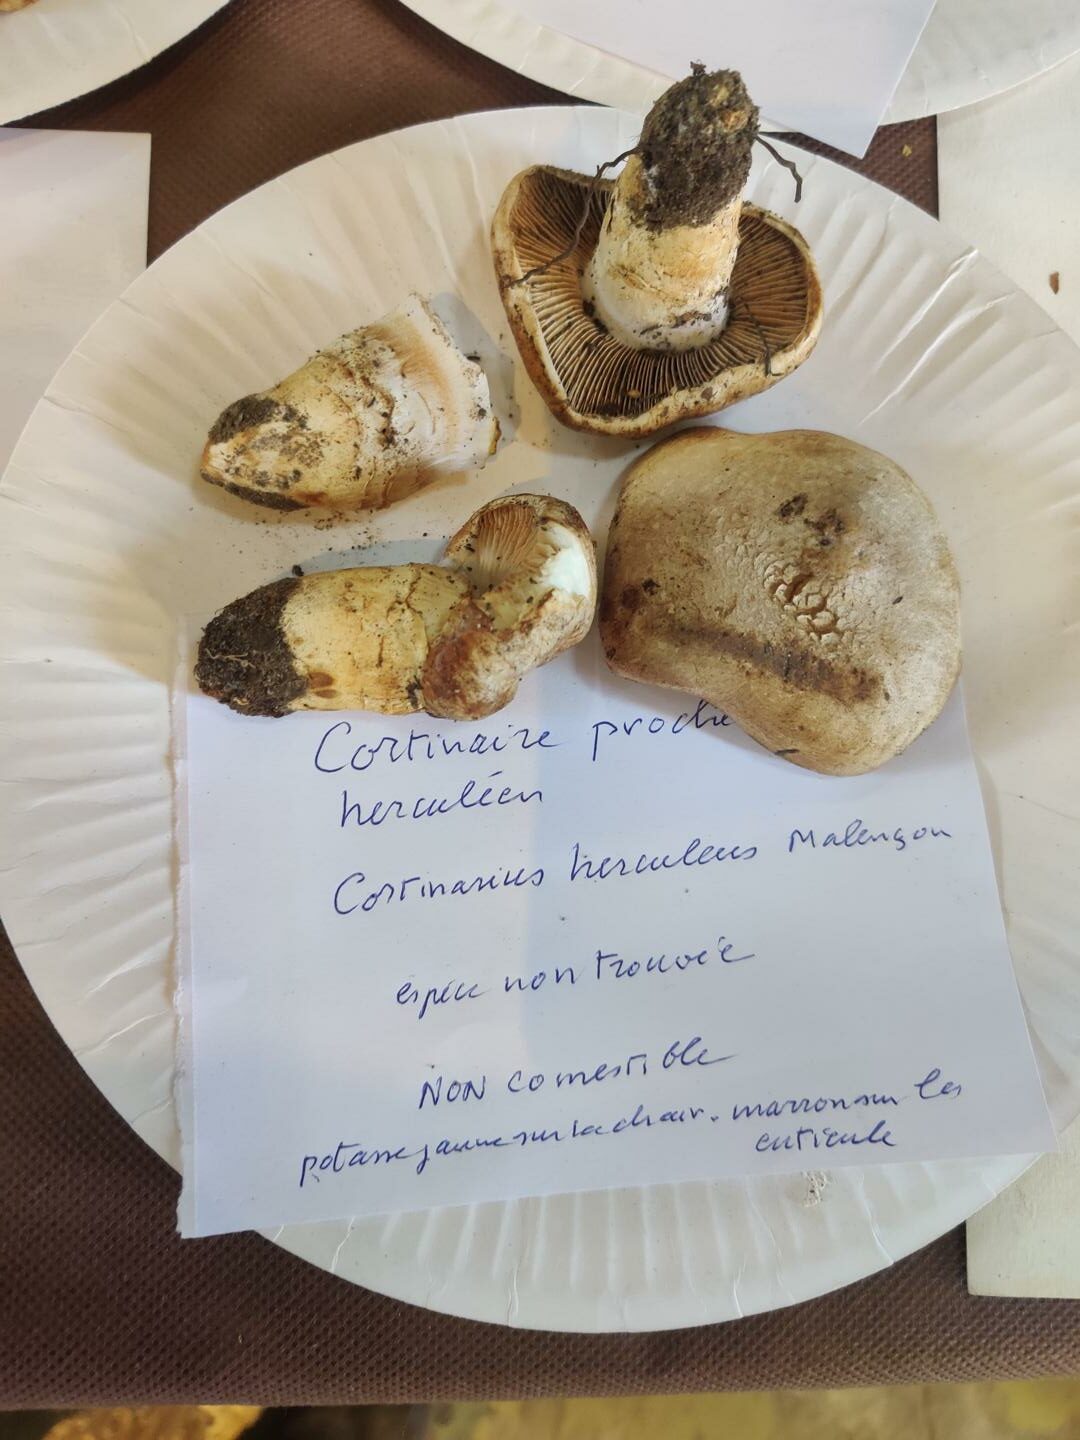 Cortinaire proche
herculéen
Cortinarius herculeus Malençon
espèce non trouvée
NON comestible
potasse jaune sur la chair. marron sur les
cuticule